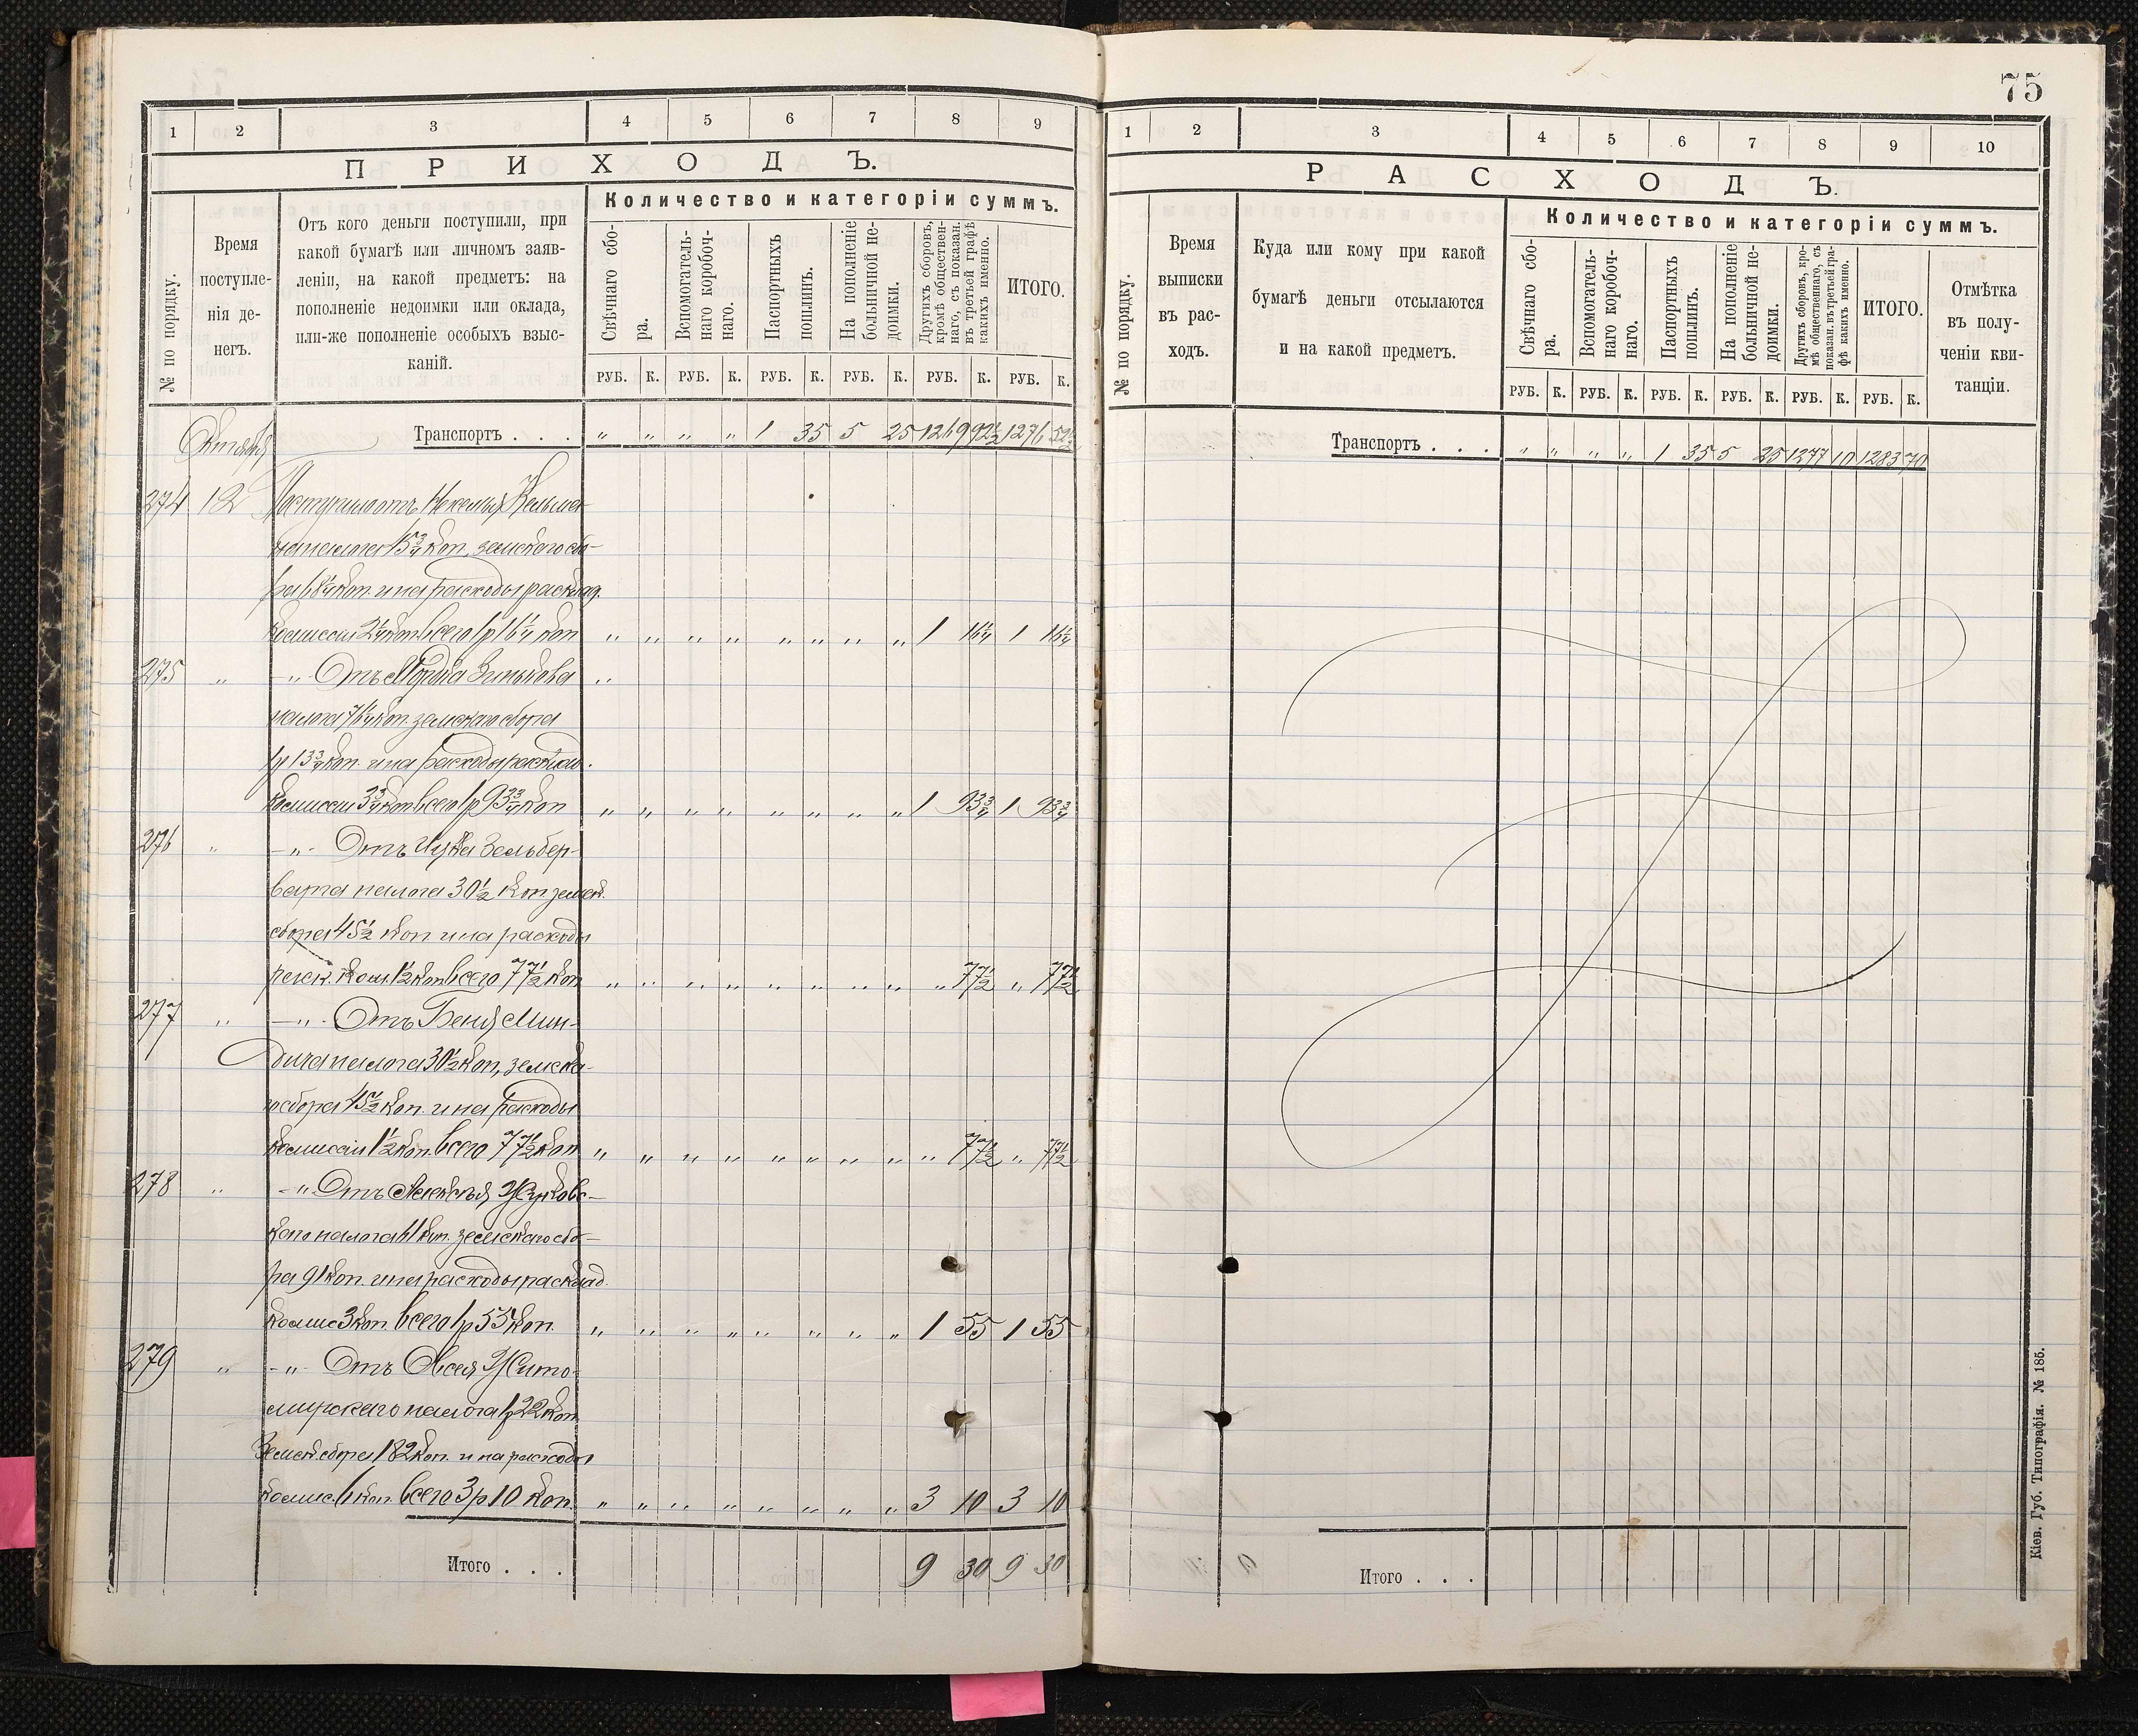 75
1 2 3 4 5 6 7 8 9
ПРИХОДЪ.
№ по порядку.
Время поступле-
нія де-
негъ.
Отъ кого деньги поступили, при
какой бумагѣ или личномъ заяв-
леніи, на какой предметъ: на
пополненіе недоимки или оклада,
или-же пополненіе особыхъ взыс-
каній.
Количество и категоріи суммъ.
Свѣчнаго сбо-
ра.
Вспомогатель-
наго коробоч-
наго.
Паспортныхъ
пошлинъ.
На пополненіе
больничной не-
доимки.
Другихъ сборовъ,
кромѣ обществен-
наго, съ показан.
въ третьей графѣ
какихъ именно.
ИТОГО.
РУБ. К. РУБ. К. РУБ. К. РУБ. К. РУБ. К. РУБ. К.
Октября
Транспортъ . . . „ „ „ „ 1 35 5 25 1269 92½ 1276 52½
274 12 Поступило отъ
налога 45¾ коп. земскаго сбо-
ра 68¼ коп. и на расходы расклад.
комиссіи 2¼ коп. всего 1 р 16¼ коп „ „ „ „ „ „ „ „ 1 16¼ 1 16¼
275 „ -„- Отъ
налога 76¼ коп. земскаго сбора
1 р 13¾ коп. и на расходы расклад.
комиссіи 3¾ коп всего 1 р 93¾ коп „ „ „ „ „ „ „ „ 1 93¾ 1 93¾
276 „ -„- Отъ Ицка Зельбер-
варга налога 30½ коп. земск.
сбора 45½ коп и на расходы
раск. ком. 1½ коп всего 77½ коп „ „ „ „ „ „ „ „ „ 77½ „ 77½
277 „ -„- Отъ
дича налога 30½ коп, земска-
го сбора 45½ коп. и на расходы
комиссіи 1½ коп. всего 77½ коп „ „ „ „ „ „ „ „ „ 77½ „ 77½
278 „ -„- Отъ Жуковс-
каго налога 61 коп. земскаго сбо-
ра 91 коп. и на расходы расклад.
комис 3 коп. всего 1 р 55 коп. „ „ „ „ „ „ „ „ 1 55 1 55
279 „ -„- Отъ Овсея Жито-
мирскаго налога 1 р 22 коп
земск. сбора 182 коп. и на расходы
комис. 6 коп. всего 3 р 10 коп. „ „ „ „ „ „ „ „ 3 10 3 10
Итого . . . 9 30 9 30
1 2 3 4 5 6 7 8 9 10
РАСХОДЪ.
№ по порядку.
Время
выписки
въ рас-
ходъ.
Куда или кому при какой
бумагѣ деньги отсылаются
и на какой предметъ.
Количество и категоріи суммъ.
Свѣчнаго сбо-
ра.
Вспомогатель-
наго коробоч-
наго.
Паспортныхъ
пошлинъ.
На пополненіе
больничной не-
доимки.
Другихъ сборовъ, кро-
мѣ общественнаго, съ
показан. въ третьей гра-
фѣ какихъ именно.
ИТОГО.
Отмѣтка
въ полу-
ченіи кви-
танціи.
РУБ. К. РУБ. К. РУБ. К. РУБ. К. РУБ. К. РУБ. К.
Транспортъ . . . „ „ „ „ 1 35 5 25 1277 10 1283 70
Итого . . .
Кіев. Губ. Типографія. № 185.